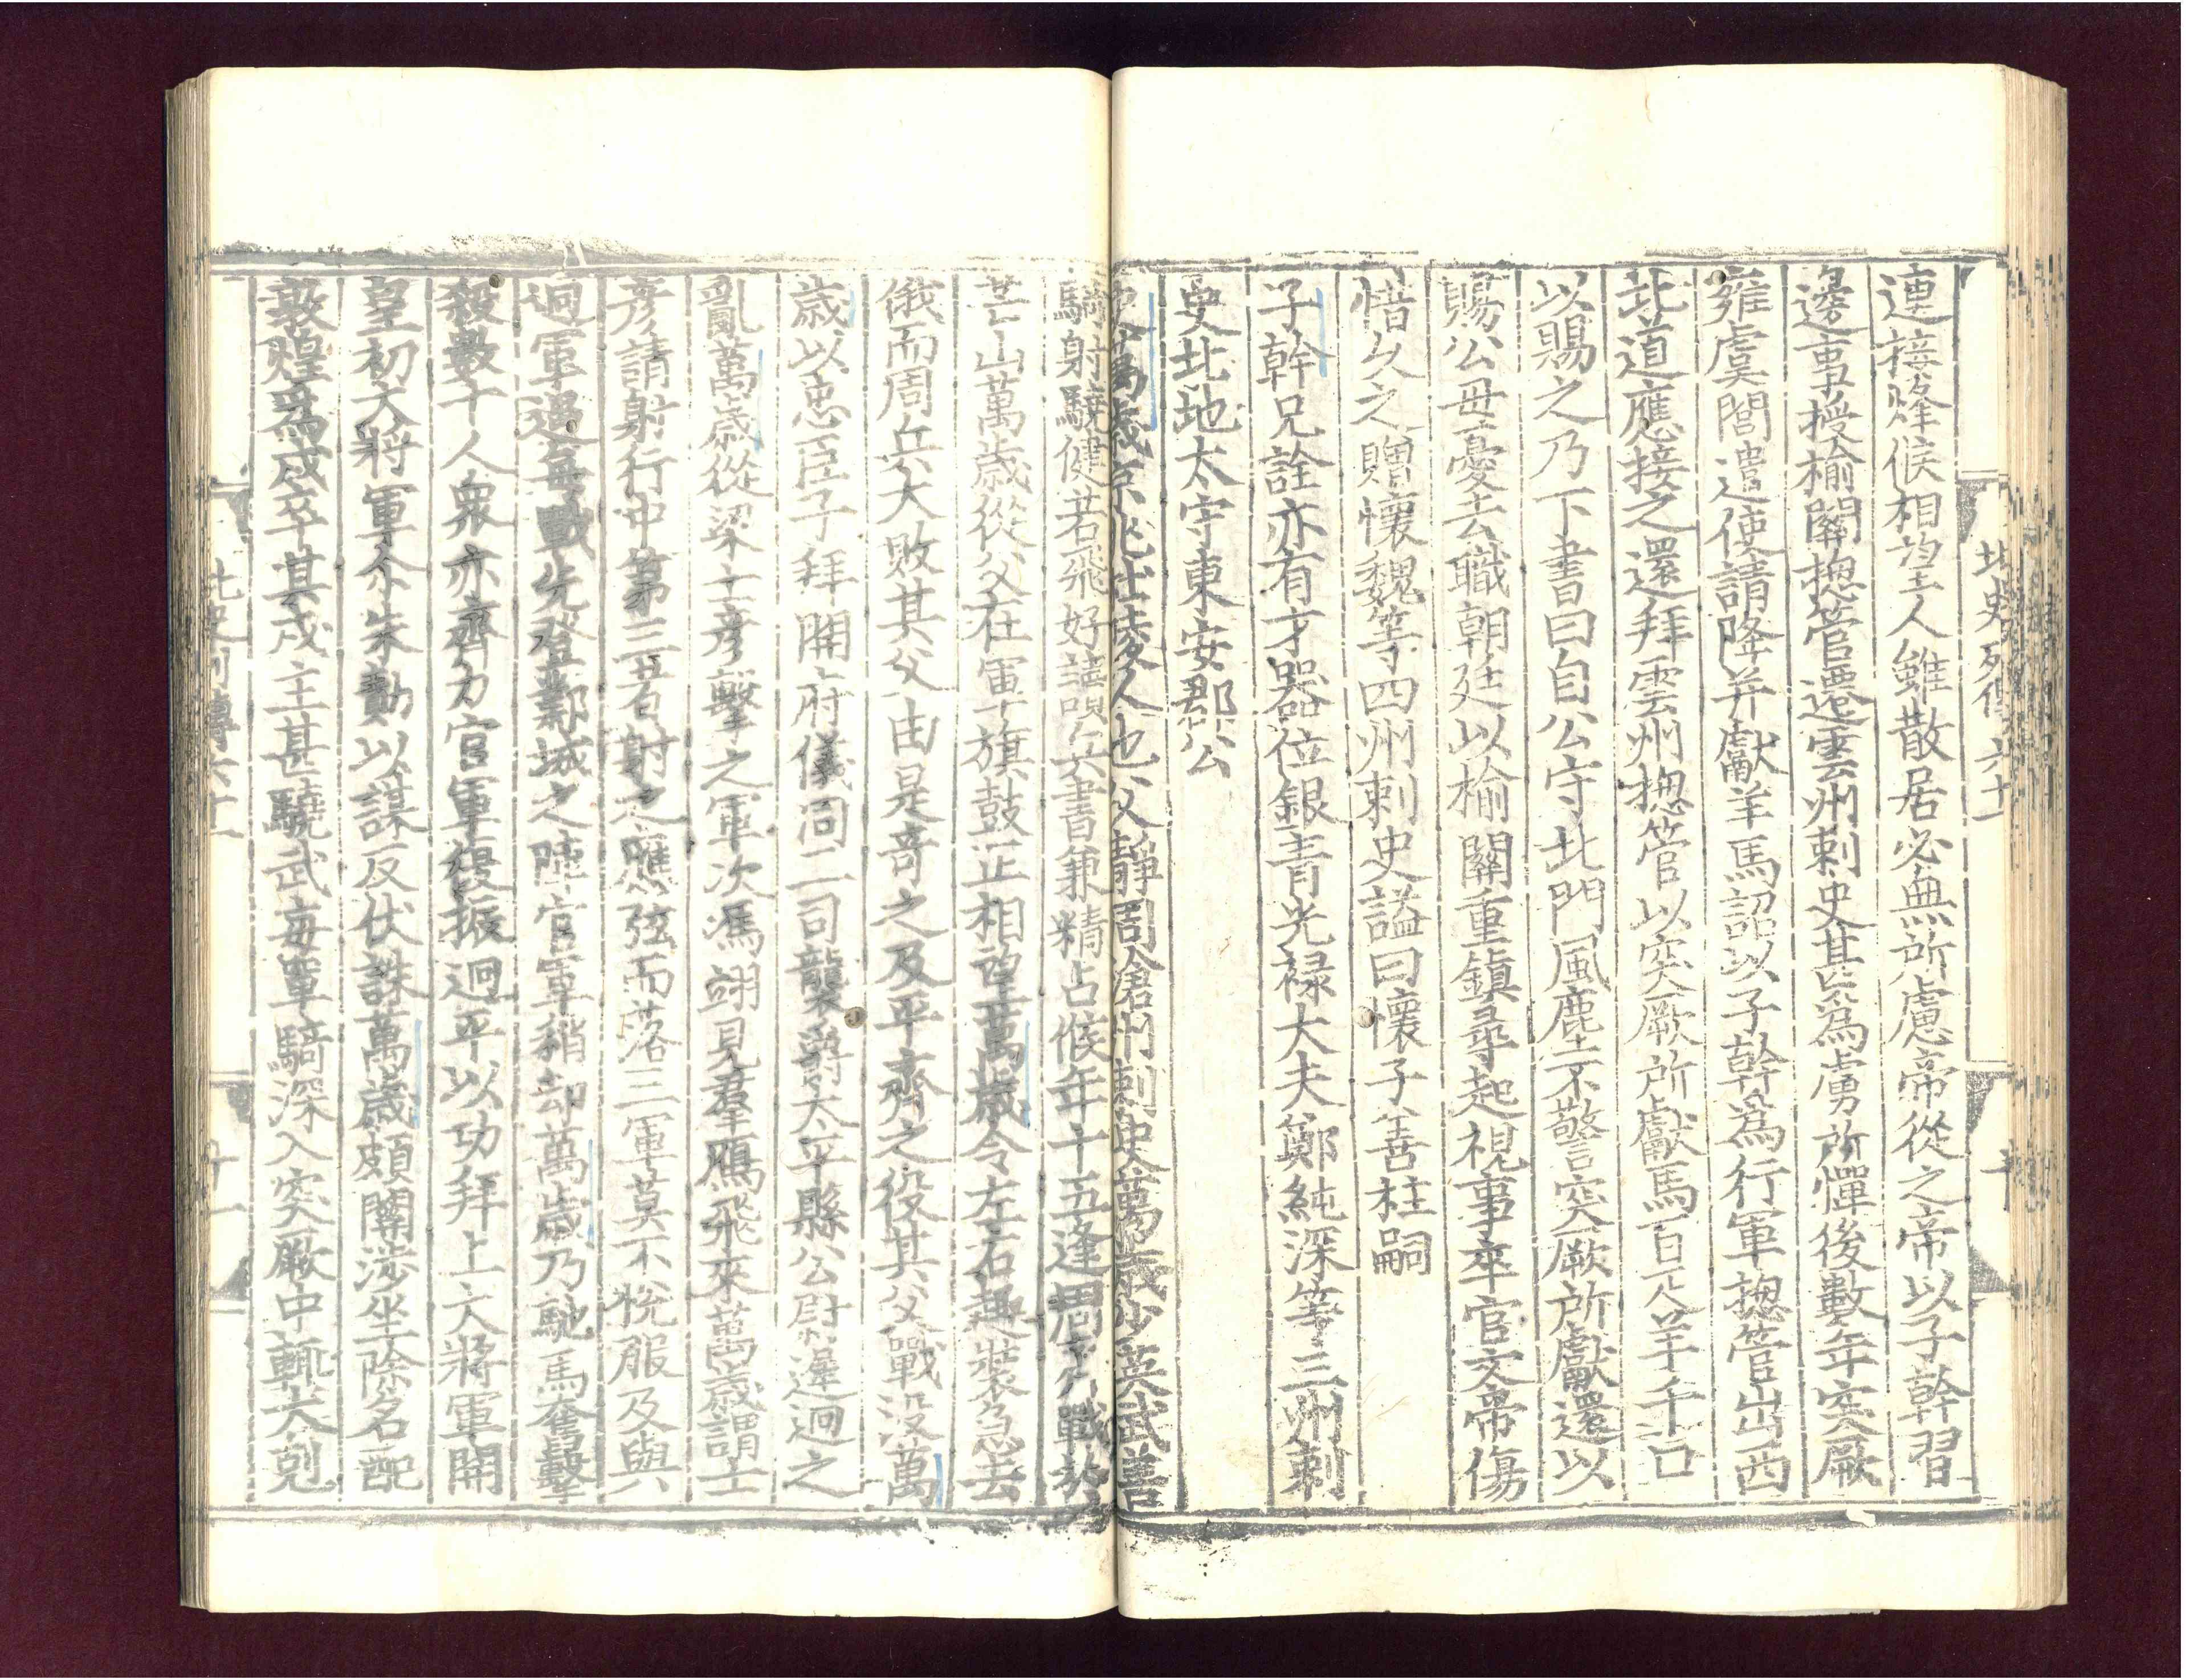 北史列傳六十一
連接烽候相望人雖散居必無所慮帝從之帝以子幹習
邊事授榆關揔管遷雲州刺史甚爲虜所憚後數年突厥
雍虞閭遣使請降并獻羊馬詔以子幹爲行軍揔管出西
北道應接之還拜雲州揔管以突厥所獻馬百疋羊千口
以賜之乃下書曰自公守北門風塵不警突厥所獻還以
賜公母憂去職朝廷以榆關重鎮尋起視事卒官文帝傷
惜久之贈懷魏等四州刺史謚曰懷子善柱嗣
子幹兄詮亦有才器位銀青光禄大夫鄭純深等三州刺
史北地太守東安郡公
史萬歲京兆杜陵人也父靜周滄州刺史萬歲少英武善
騎射驍健若飛好讀兵書兼精占候年十五逢周齊戰於
芒山萬歲從父在軍旗鼓正相望萬歲令左右趣裝急去
俄而周兵大敗其父由是奇之及平齊之役其父戰没萬
歲以忠臣子拜開府儀同三司襲爵太平縣公尉遲迥之
亂萬歲從梁士彥擊之軍次馮翊見羣鴈飛來萬歲謂士
彥請射行中第三者射之應弦而落三軍莫不悅服及與
迥軍遇每戰先登鄴城之陣官軍稍却萬歲乃馳馬奮擊
殺數十人衆亦齊力官軍復振迥平以功拜上大將軍開
皇初大將軍尒朱勣以謀反伏誅萬歲頗關涉坐除名配
敦煌爲戍卒其戍主甚驍武每單騎深入突厥中輒大剋
北史列傳六十一